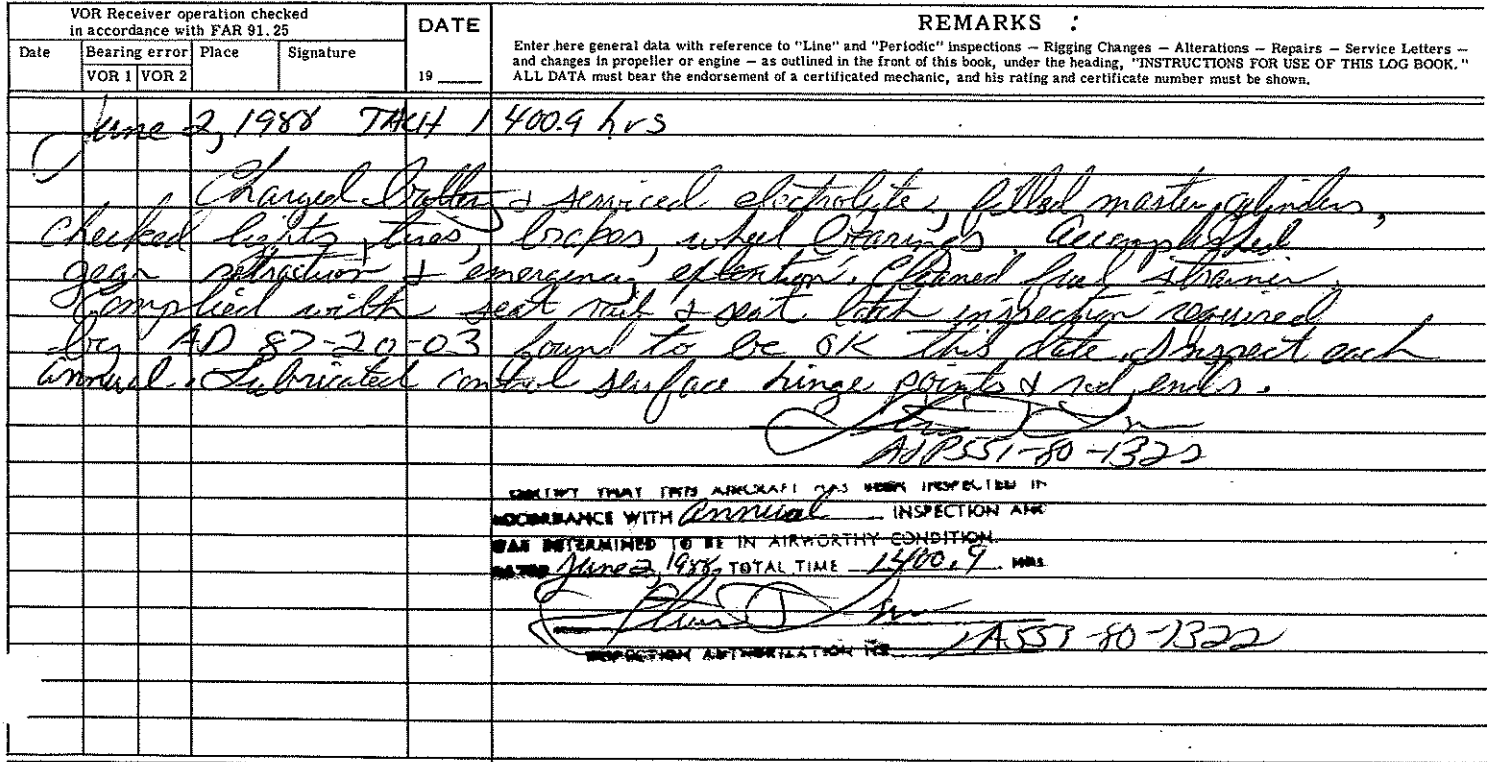 VOR Receiver operation checked
in accordance with FAR 91.25
Date Bearing error Place Signature
VOR 1 VOR 2
DATE
19
REMARKS :
Enter here general data with reference to "Line" and "Periodic" inspections — Rigging Changes — Alterations — Repairs — Service Letters —
and changes in propeller or engine — as outlined in the front of this book, under the heading, "INSTRUCTIONS FOR USE OF THIS LOG BOOK."
ALL DATA must bear the endorsement of a certificated mechanic, and his rating and certificate number must be shown.
June 2, 1988 TACH 1400.9 hrs
Charged battery & serviced electrolyte, filled master cylinders,
checked lights, tires, brakes, wheel bearings. Accomplished
gear retraction & emergency extention. Cleaned fuel strainer.
Complied with seat rail & seat latch inspection required
by AD 87-20-03 found to be OK this date. Inspect each
annual. Lubricated control surface hinge points & rod ends.
551-80-1322
THAT THIS AIRCRAFT HAS BEEN INSPECTED IN
ACCORDANCE WITH annual INSPECTION AND
WAS DETERMINED TO BE IN AIRWORTHY CONDITION.
DATED June 2, 1988, TOTAL TIME 1400.9 HRS.
INSPECTION AUTHORIZATION